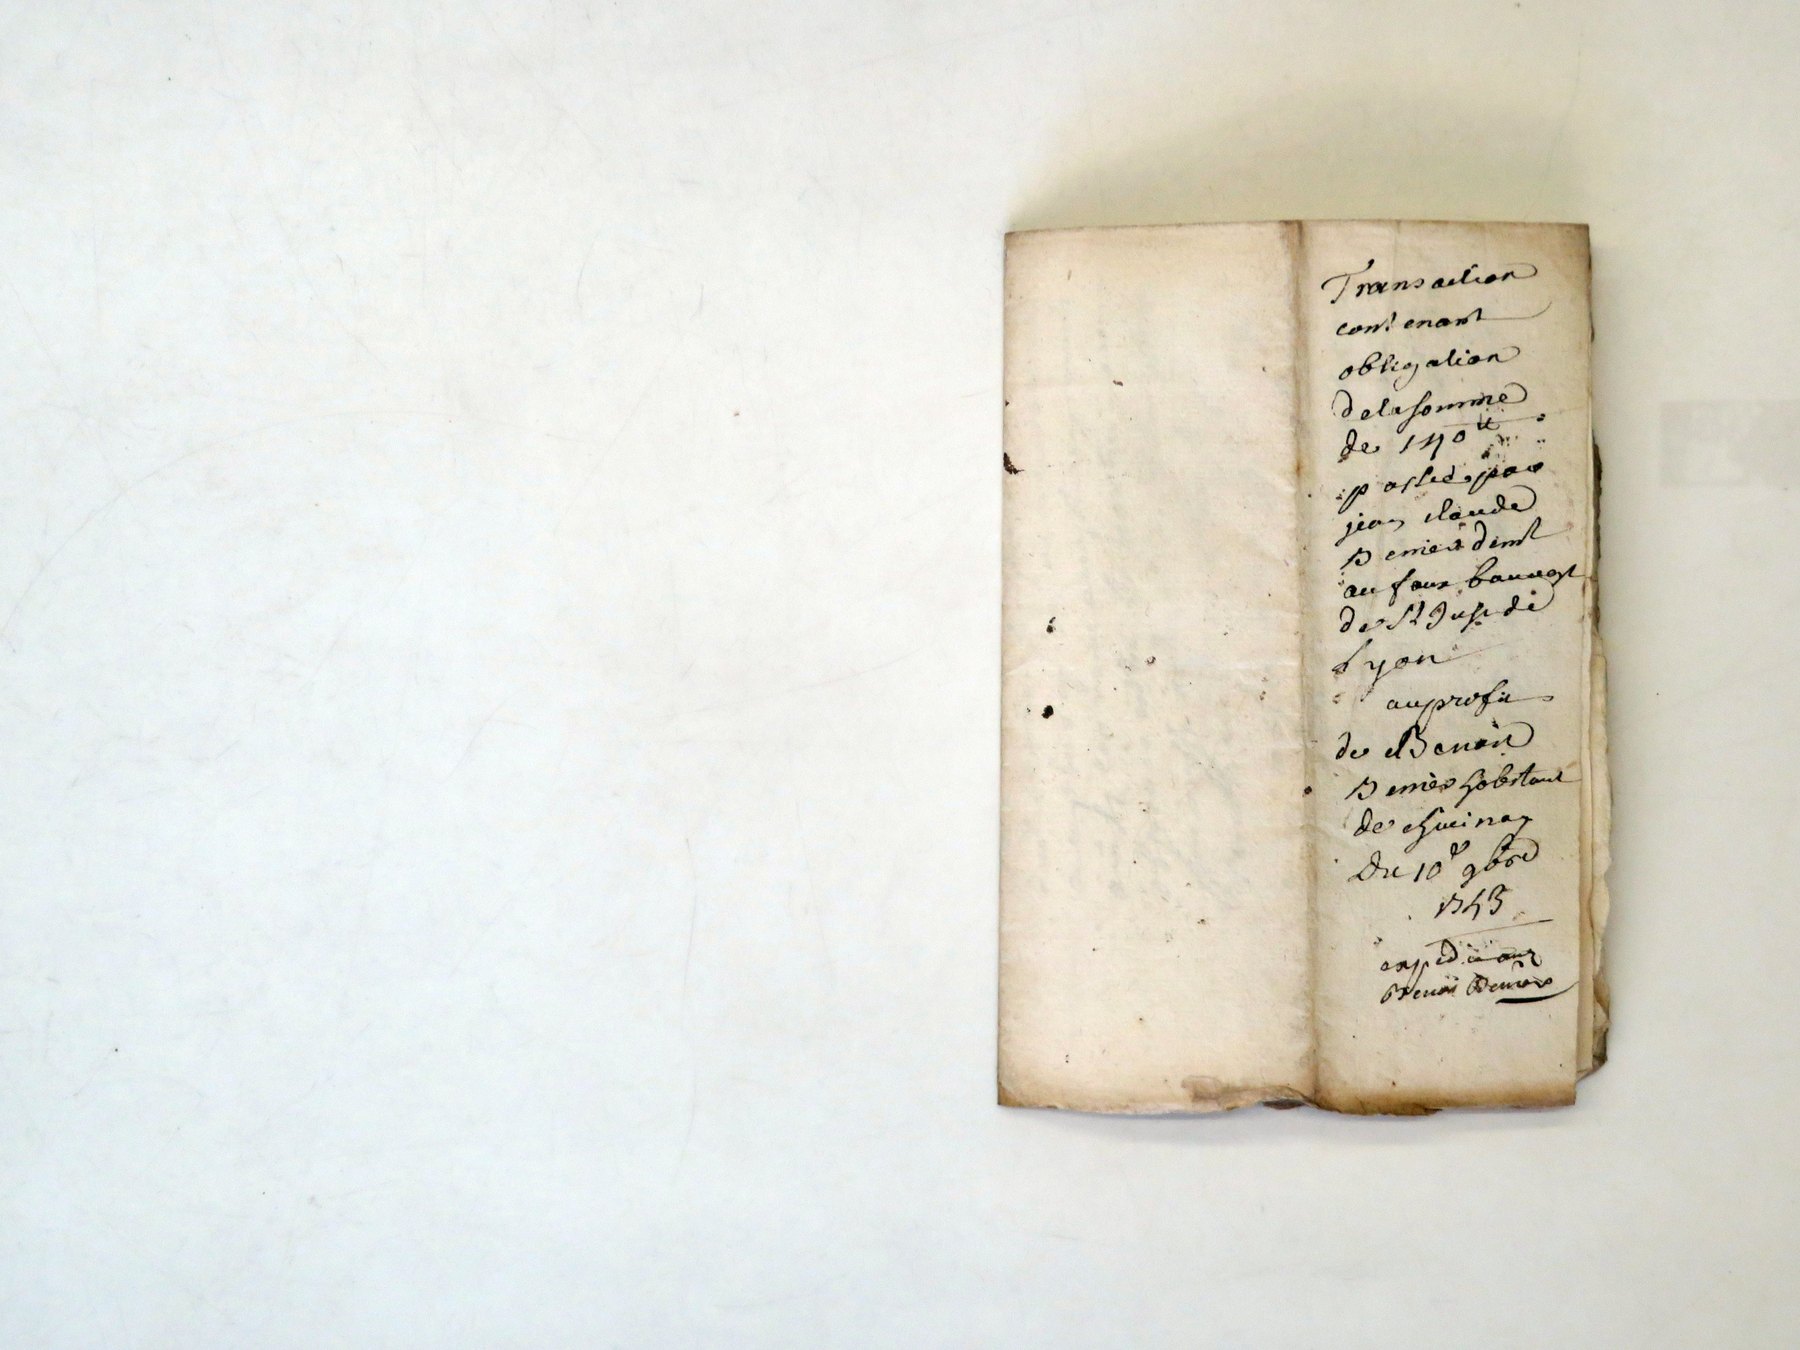 Transaction
contenant
obligation
delasomme
de 170tt
passée par
jean claude
Bemer demt
au faux bourogt
de St Just de
Lyon
auprofit
de Benoit
Bemer habitant
de
Du 10e 9bre
1743
expedié aud
Benoit Bemer